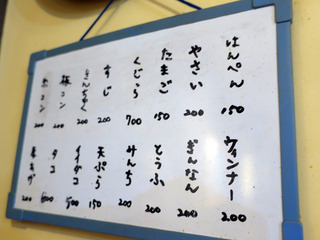 はんぺん 150
やさい 200
たまご 150
くじら 700
すじ 200
こんにゃく 200
板コン 200
糸コン 200
ウィンナー 200
ぎんなん 200
とうふ 200
みんち 200
天ぷら 150
イイダコ 500
タコ
ネギマ 200